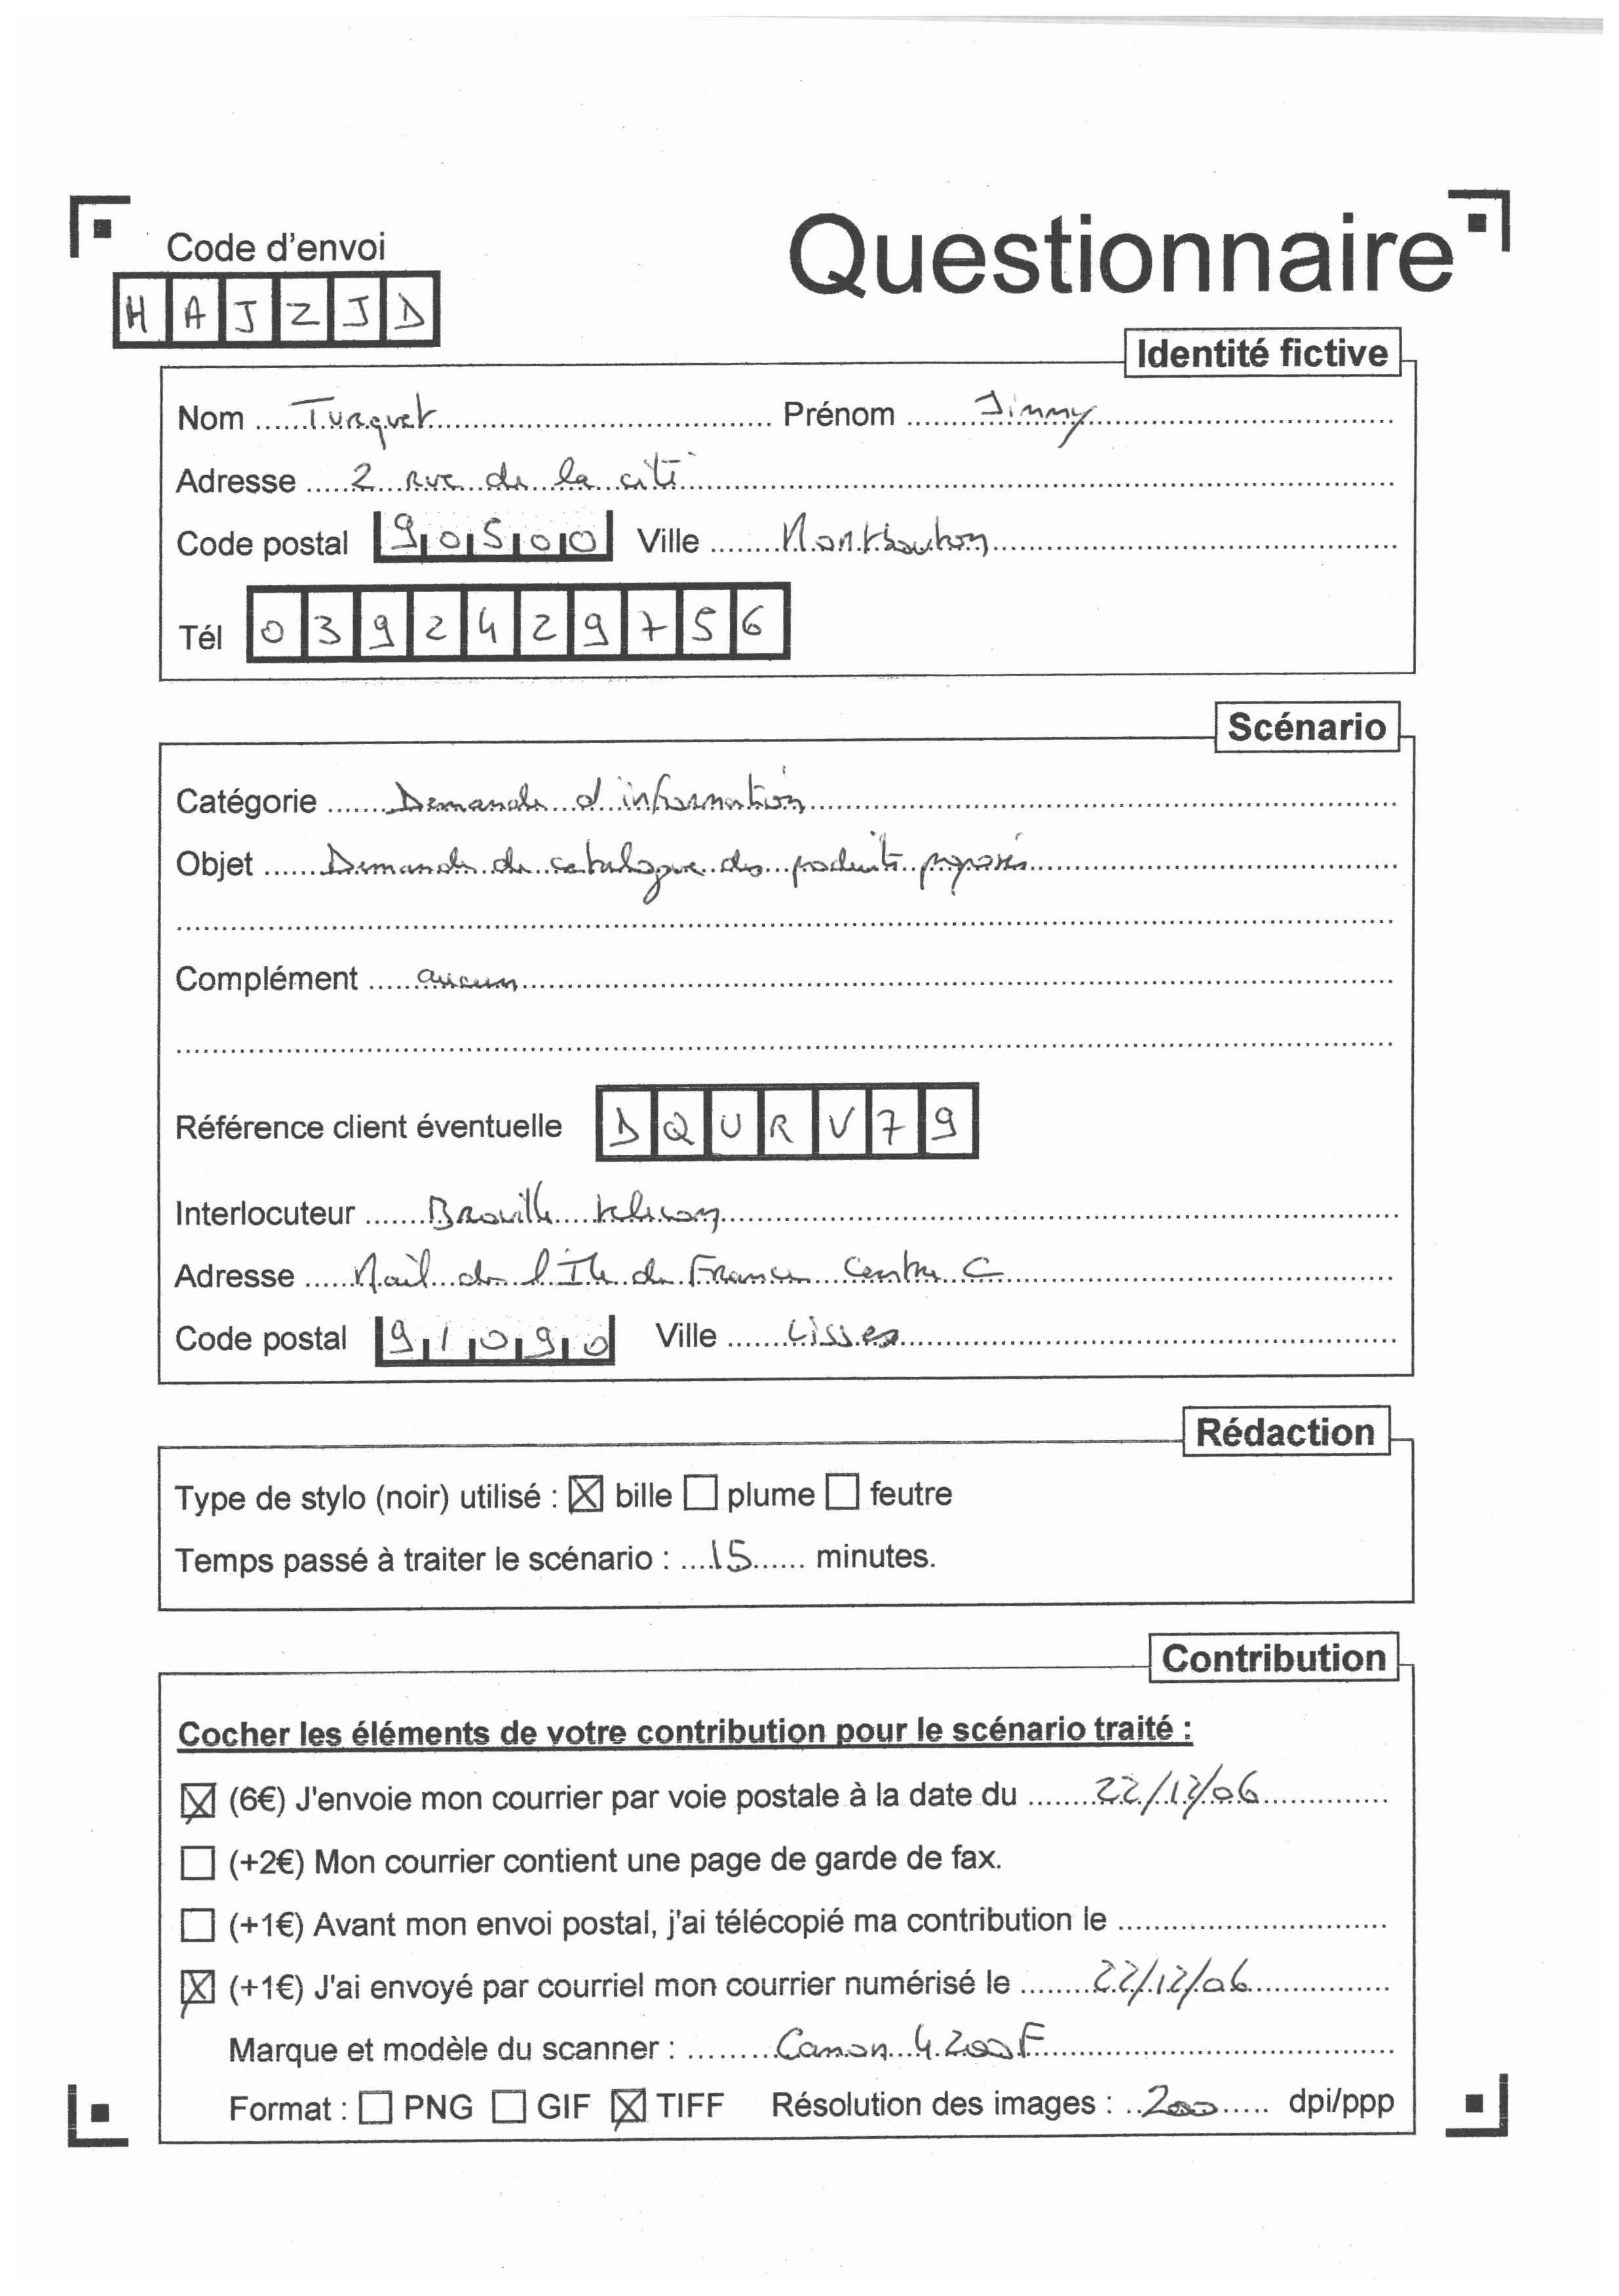 Questionnaire
Code d'envoi
H A J Z J D
Identité fictive
Nom ...... Turquet ...... Prénom ...... Jimmy ......
Adresse ..... 2 rue de la cité ......
Code postal 90500 Ville ...... Montbouton ......
Tél 0392429756
Scénario
Catégorie ...... Demande d'information ......
Objet ...... Demande de catalogue des produits proposés ......
Complément ...... aucun ......
Référence client éventuelle DQURV79
Interlocuteur ...... Brouille telecom ......
Adresse ...... Mail de l'Ile de France Centre C ......
Code postal 91090 Ville ...... Lisses ......
Rédaction
Type de stylo (noir) utilisé : ☒ bille ☐ plume ☐ feutre
Temps passé à traiter le scénario : .... 15 ...... minutes.
Contribution
Cocher les éléments de votre contribution pour le scénario traité :
☒ (6€) J'envoie mon courrier par voie postale à la date du ...... 22/12/06 ......
☐ (+2€) Mon courrier contient une page de garde de fax.
☐ (+1€) Avant mon envoi postal, j'ai télécopié ma contribution le ......
☒ (+1€) J'ai envoyé par courriel mon courrier numérisé le ...... 22/12/06 ......
Marque et modèle du scanner : ...... Canon 4200F ......
Format : ☐ PNG ☐ GIF ☒ TIFF Résolution des images : .. 200 ..... dpi/ppp